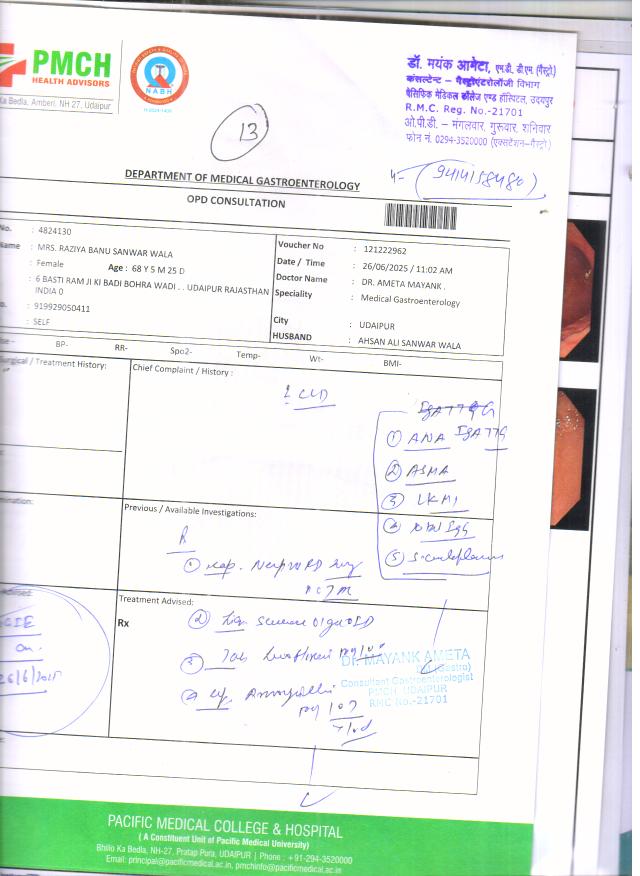 PMCH
HEALTH ADVISORS
Ka Bedla, Amberi, NH 27, Udaipur
NABH
H-2024-1426
डॉ. मयंक आमेटा, एम.डी. डी.एम. (गैस्ट्रो)
कंसल्टेन्ट – गैस्ट्रोएंटरोलॉजी विभाग
पैसिफिक मेडिकल कॉलेज एण्ड हॉस्पिटल, उदयपुर
R.M.C. Reg. No.-21701
ओ.पी.डी. – मंगलवार, गुरूवार, शनिवार
फोन नं. 0294-3520000 (एक्सटेंशन-गैस्ट्रो)
13
9414158480
DEPARTMENT OF MEDICAL GASTROENTEROLOGY
OPD CONSULTATION
No. : 4824130
Name : MRS. RAZIYA BANU SANWAR WALA
: Female Age : 68 Y 5 M 25 D
: 6 BASTI RAM JI KI BADI BOHRA WADI . . UDAIPUR RAJASTHAN
INDIA 0
o. : 919929050411
: SELF
Voucher No : 121222962
Date / Time : 26/06/2025 / 11:02 AM
Doctor Name : DR. AMETA MAYANK .
Speciality : Medical Gastroenterology
City : UDAIPUR
HUSBAND : AHSAN ALI SANWAR WALA
se - BP- RR- Spo2- Temp- Wt- BMI-
Surgical / Treatment History:
Chief Complaint / History :
CLD
① ANA IgATTG
② ASMA
③ LKM1
④ IgG
⑤ S.
mination:
Previous / Available Investigations:
R
① cap.
Advised:
GIE
on
26/6/2025
Treatment Advised:
Rx
②
③ Tab
④
DR. MAYANK AMETA
(Gastro)
Consultant Gastroenterologist
PMCH UDAIPUR
RMC No.-21701
PACIFIC MEDICAL COLLEGE & HOSPITAL
( A Constituent Unit of Pacific Medical University)
Bhilo Ka Bedla, NH-27, Pratap Pura, UDAIPUR | Phone : +91-294-3520000
Email: principal@pacificmedical.ac.in, pmchinfo@pacificmedical.ac.in